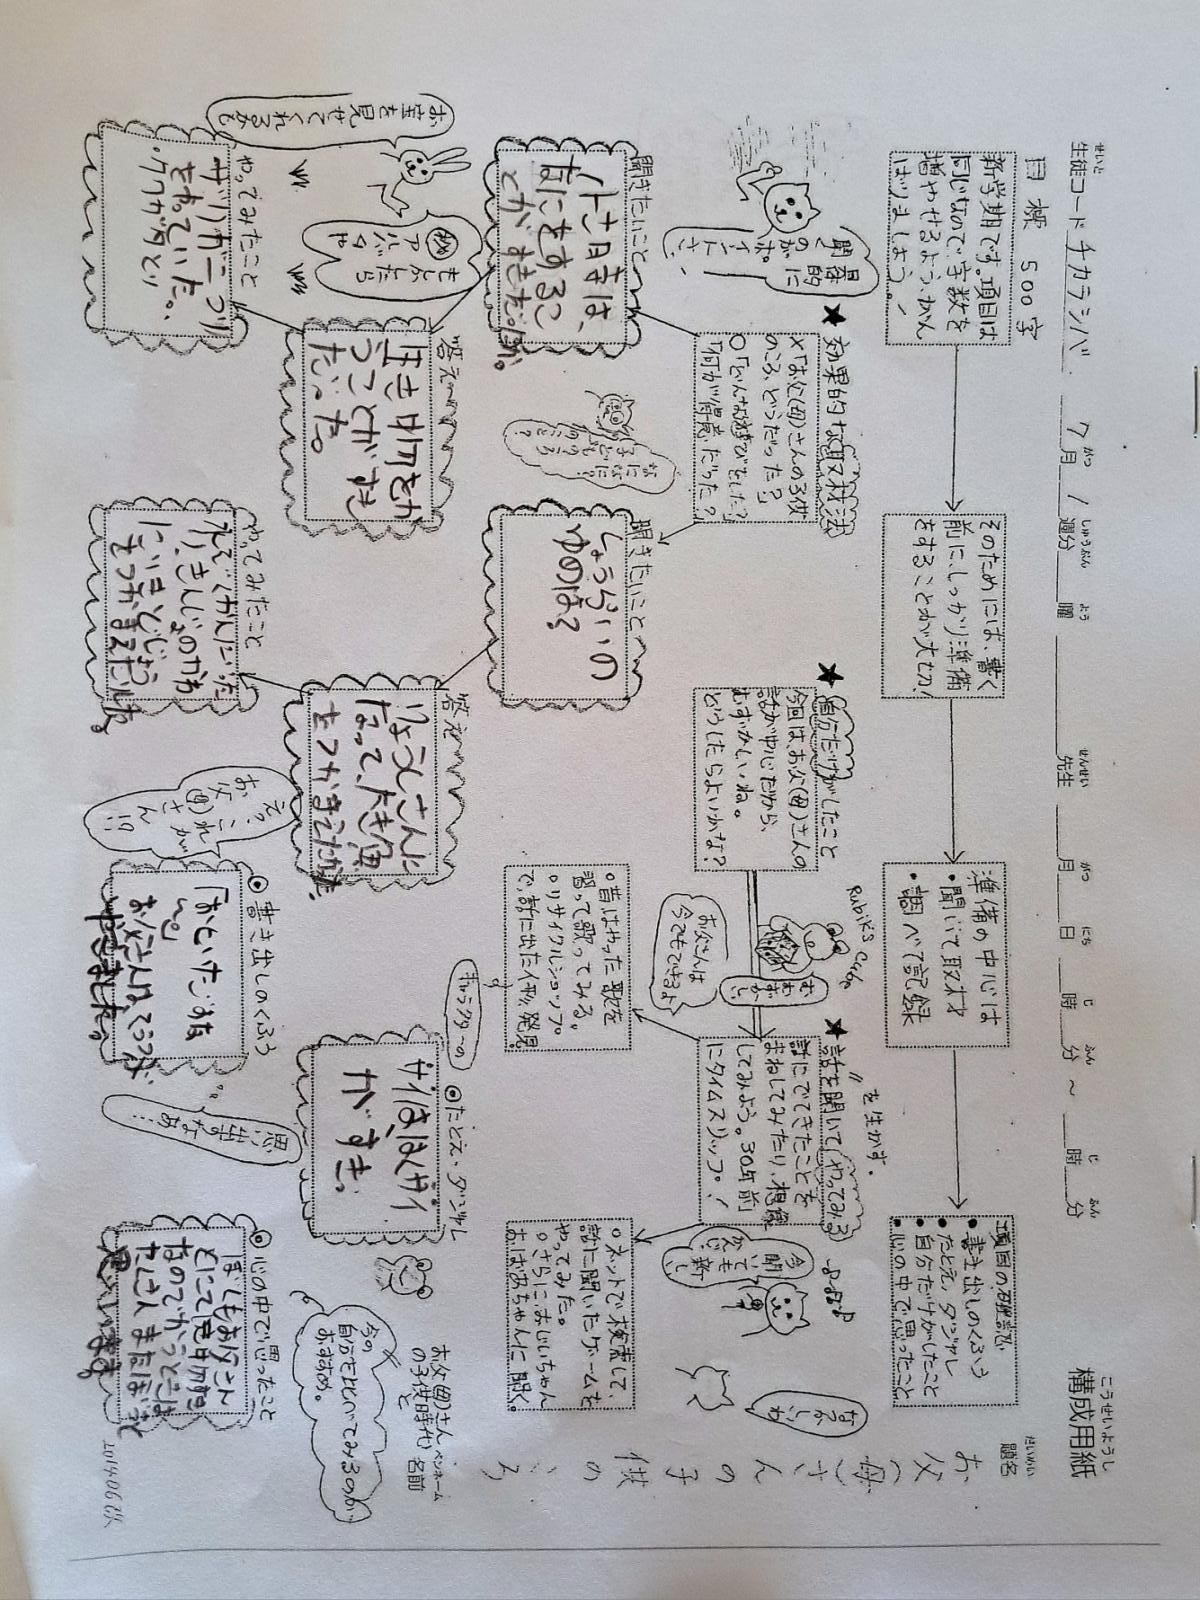 構成用紙
こうせいようし
生徒コード チカラシバ 7月 1週分 曜 先生 月 日 時 分 ~ 時 分
せいと がつ しゅうぶん よう せんせい がつ にち じ ふん じ ふん
題名
だいめい
お父(母)さんの子供のころ
目標 500字
新学期です。項目は
同じなので、字数を
増やせるようがん
ばりましょう。
そのためには、書く
前にしっかり準備
をすることが大切!
準備の中心は
・聞いて取材
・調べて記録
項目の確認
・書き出しのくふう
・たとえ・ダジャレ
・自分だけがしたこと
・心の中で思ったこと
★効果的な取材法
×「お父(母)さんの子供
のころ、どうだった?」
○「どんな遊びをした?」
「何が得意だった?」
★自分だけがしたこと
今回は、お父(母)さんの
話が中心だから、
むずかしいね。
どうしたらよいかな?
★話を聞いて(やってみる)
〃 を生かす。
話にでてきたことを
まねしてみたり、想像
してみよう。30年前
にタイムスリップ!
○昔はやった歌を
習って歌ってみる。
○リサイクルショップ
で、話に出た人形発見
○ネットで検索して、
話に聞いたゲームを
やってみた。
○さらに、おじいちゃん
おばあちゃんに聞く。
具体的に
聞く
のが
ポイントさ!
Rubik's Cube
お父さんは
今でもできるよ
む
ずか
しい
今聞いても
かんじ
新しい
なつかしいわ
キャラクターの
聞きたいこと
小さい時は、
なにをするこ
とがすきだったか。
聞きたいこと
しょうらいの
ゆめは?
答え
生き物をか
うことがすき
だった。
答え
りょうしさんに
なって、大き魚
をつかまえたかった。
お宝を見せてくれるかも
秘
もしかしたら
アルバムや
やってみたこと
ザリガニつり
をやっていた。
やってみたこと
えっ、これが
お父(母)さん
!?
◎書き出しのくふう
◎たとえ・ダジャレ
サイは、はくサイ
がすき。
思い出すなあ…
◎心の中で思ったこと
ぼくもお父さん
とにて生き物が好き
今の
自分と比べてみるのが
おすすめ。
お父(母)さん
の子供時代)と
ペンネーム
名前
201406改